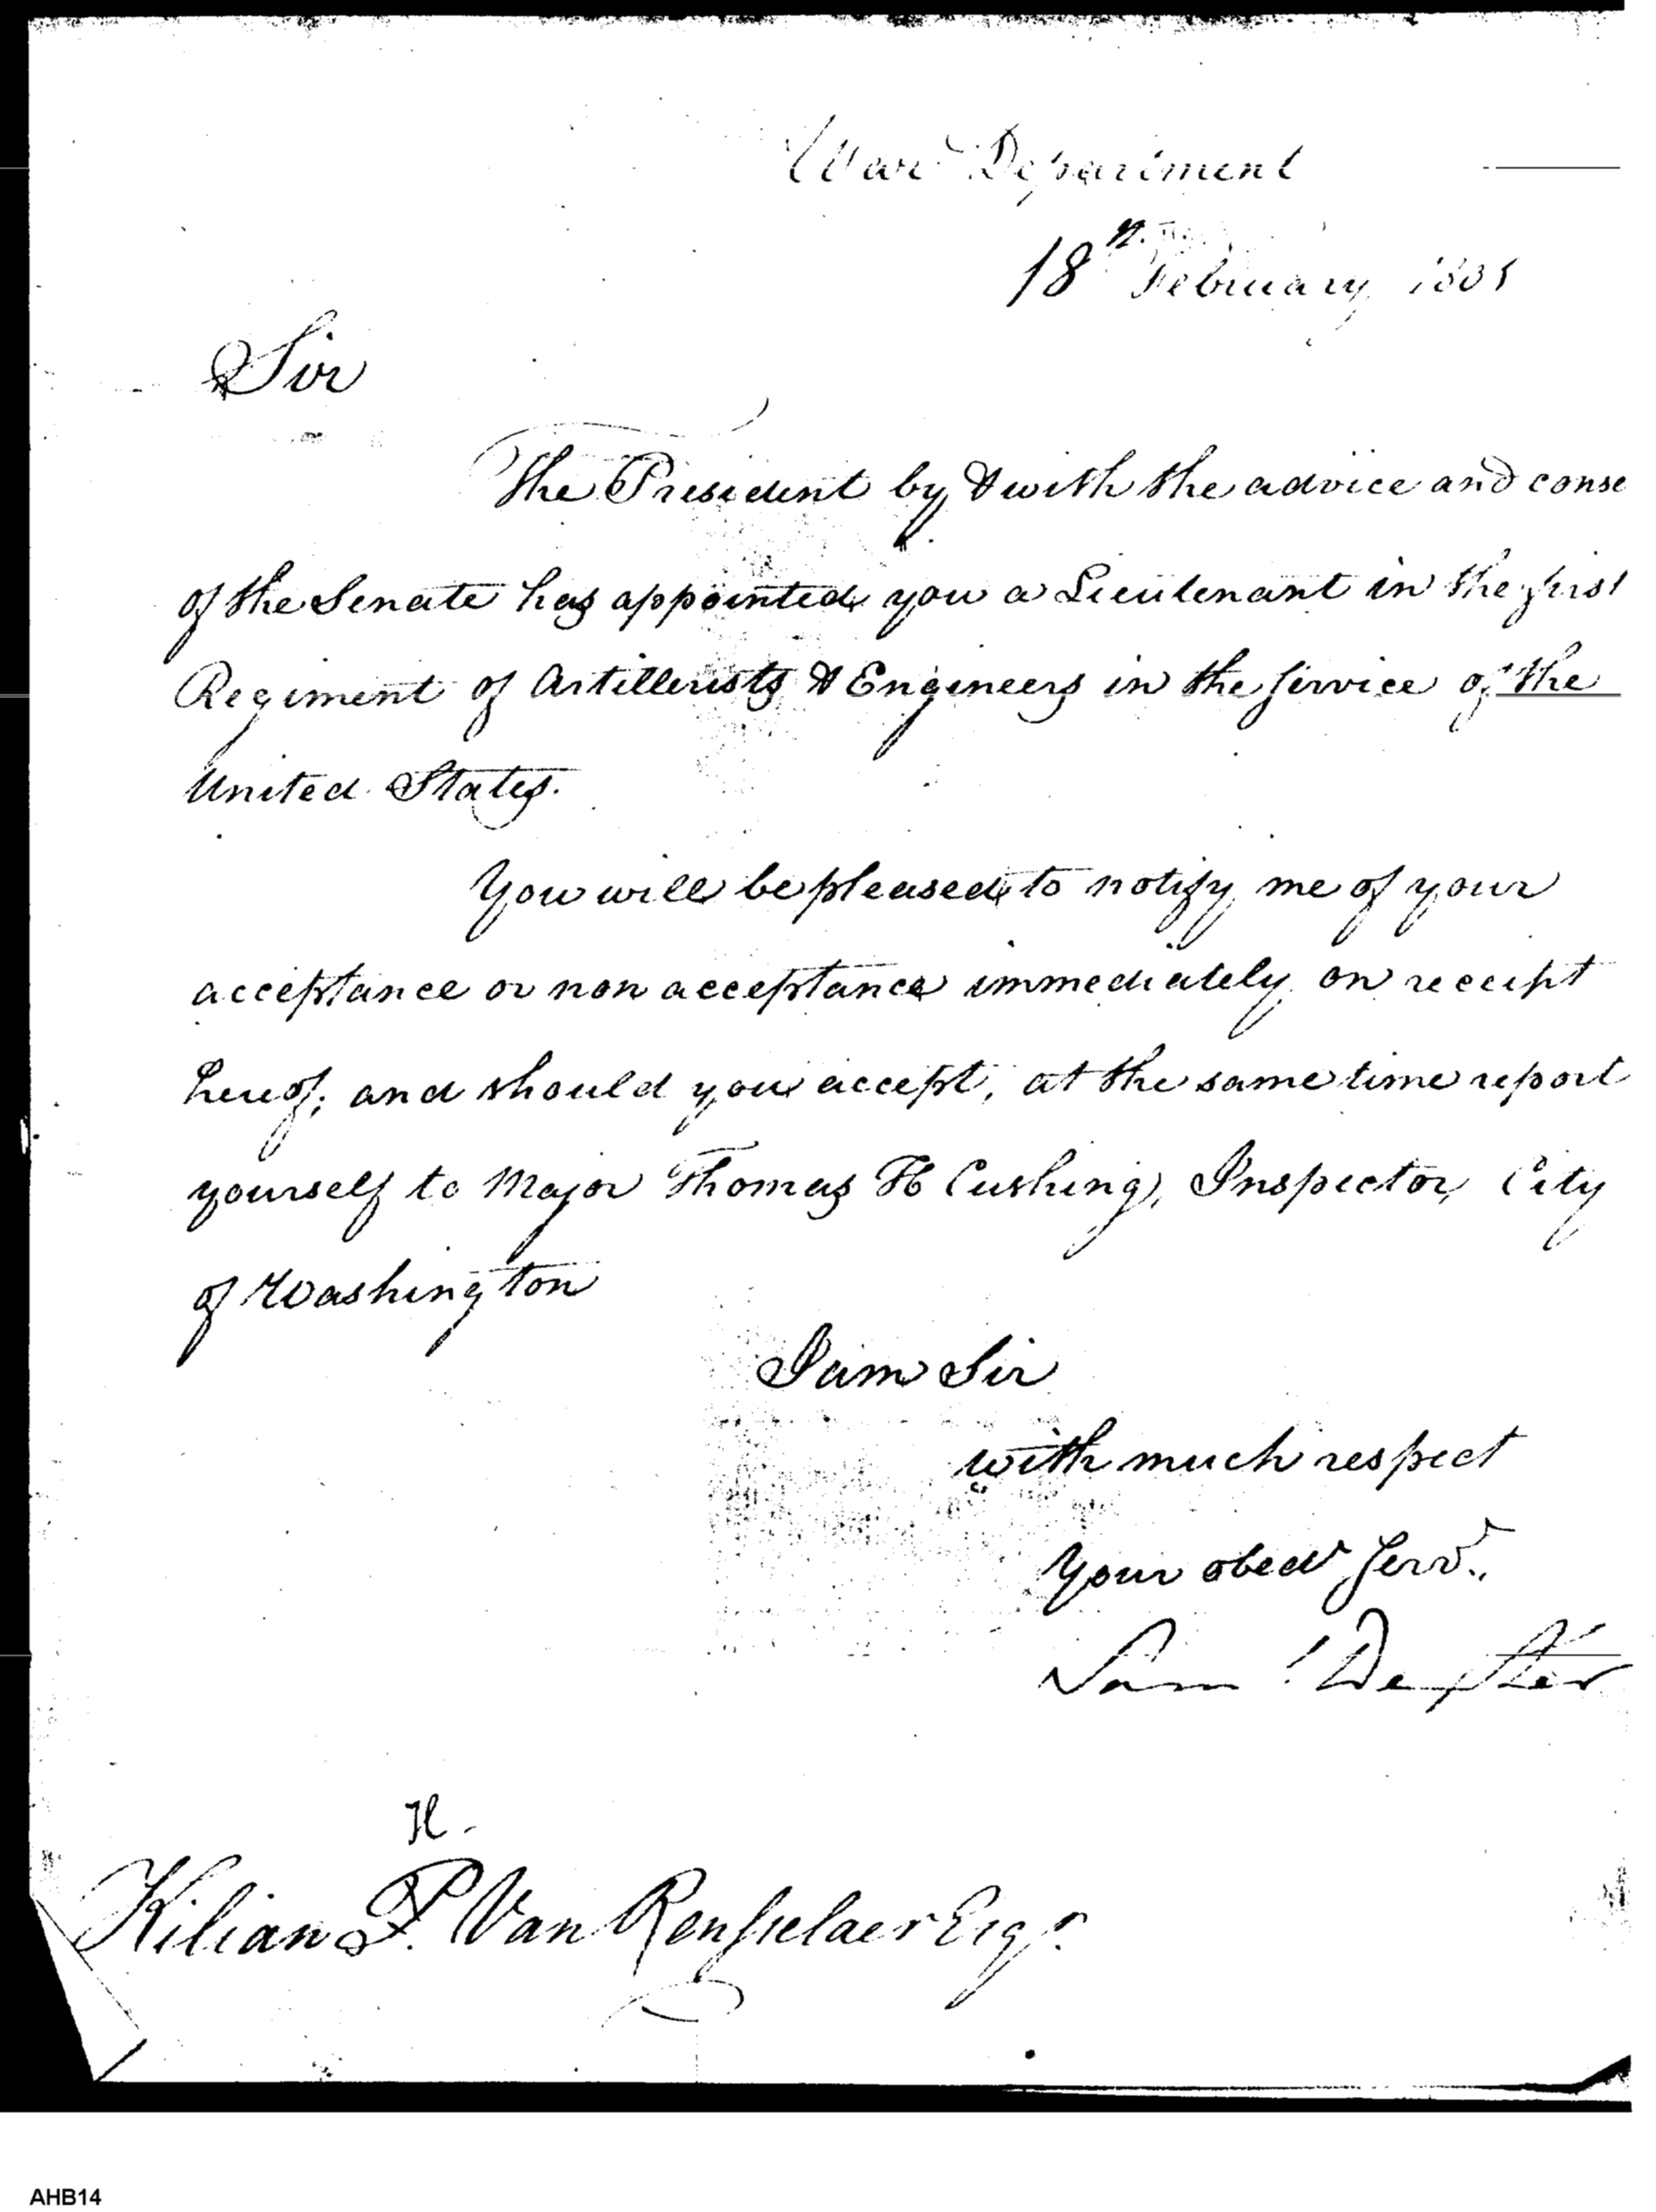 War Department
18th February 1801
Sir
The President by & with the advice and conse
of the Senate has appointed you a Lieutenant in the first
Regiment of Artillerists & Engineers in the Service of the
United States.
You will be pleased to notify me of your
acceptance or non acceptance immediately on receipt
hereof; and should you accept, at the same time report
yourself to Major Thomas H Cushing, Inspector, City
of Washington
I am Sir
with much respect
Your obedt Servt.
Saml Dexter
H.
Kilian P. Van Rensselaer Esqr.
AHB14